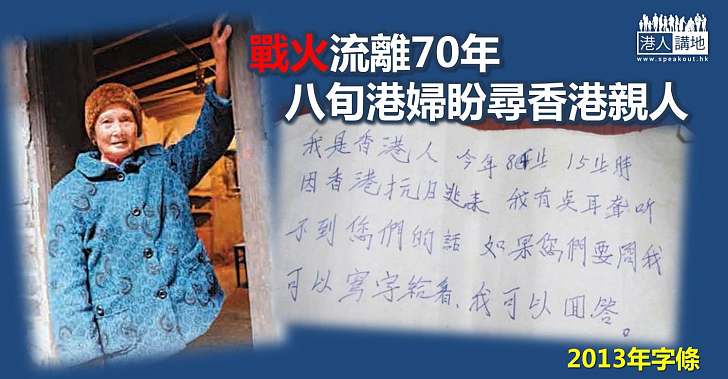 港人講地
www.speakout.hk
戰火流離70年
八旬港婦盼尋香港親人
我是香港人 今年 15些時
因香港抗日逃来 我有奌耳聾听
不到您們的話 如果您們要問我
可以寫字給看,我可以回答。
2013年字條